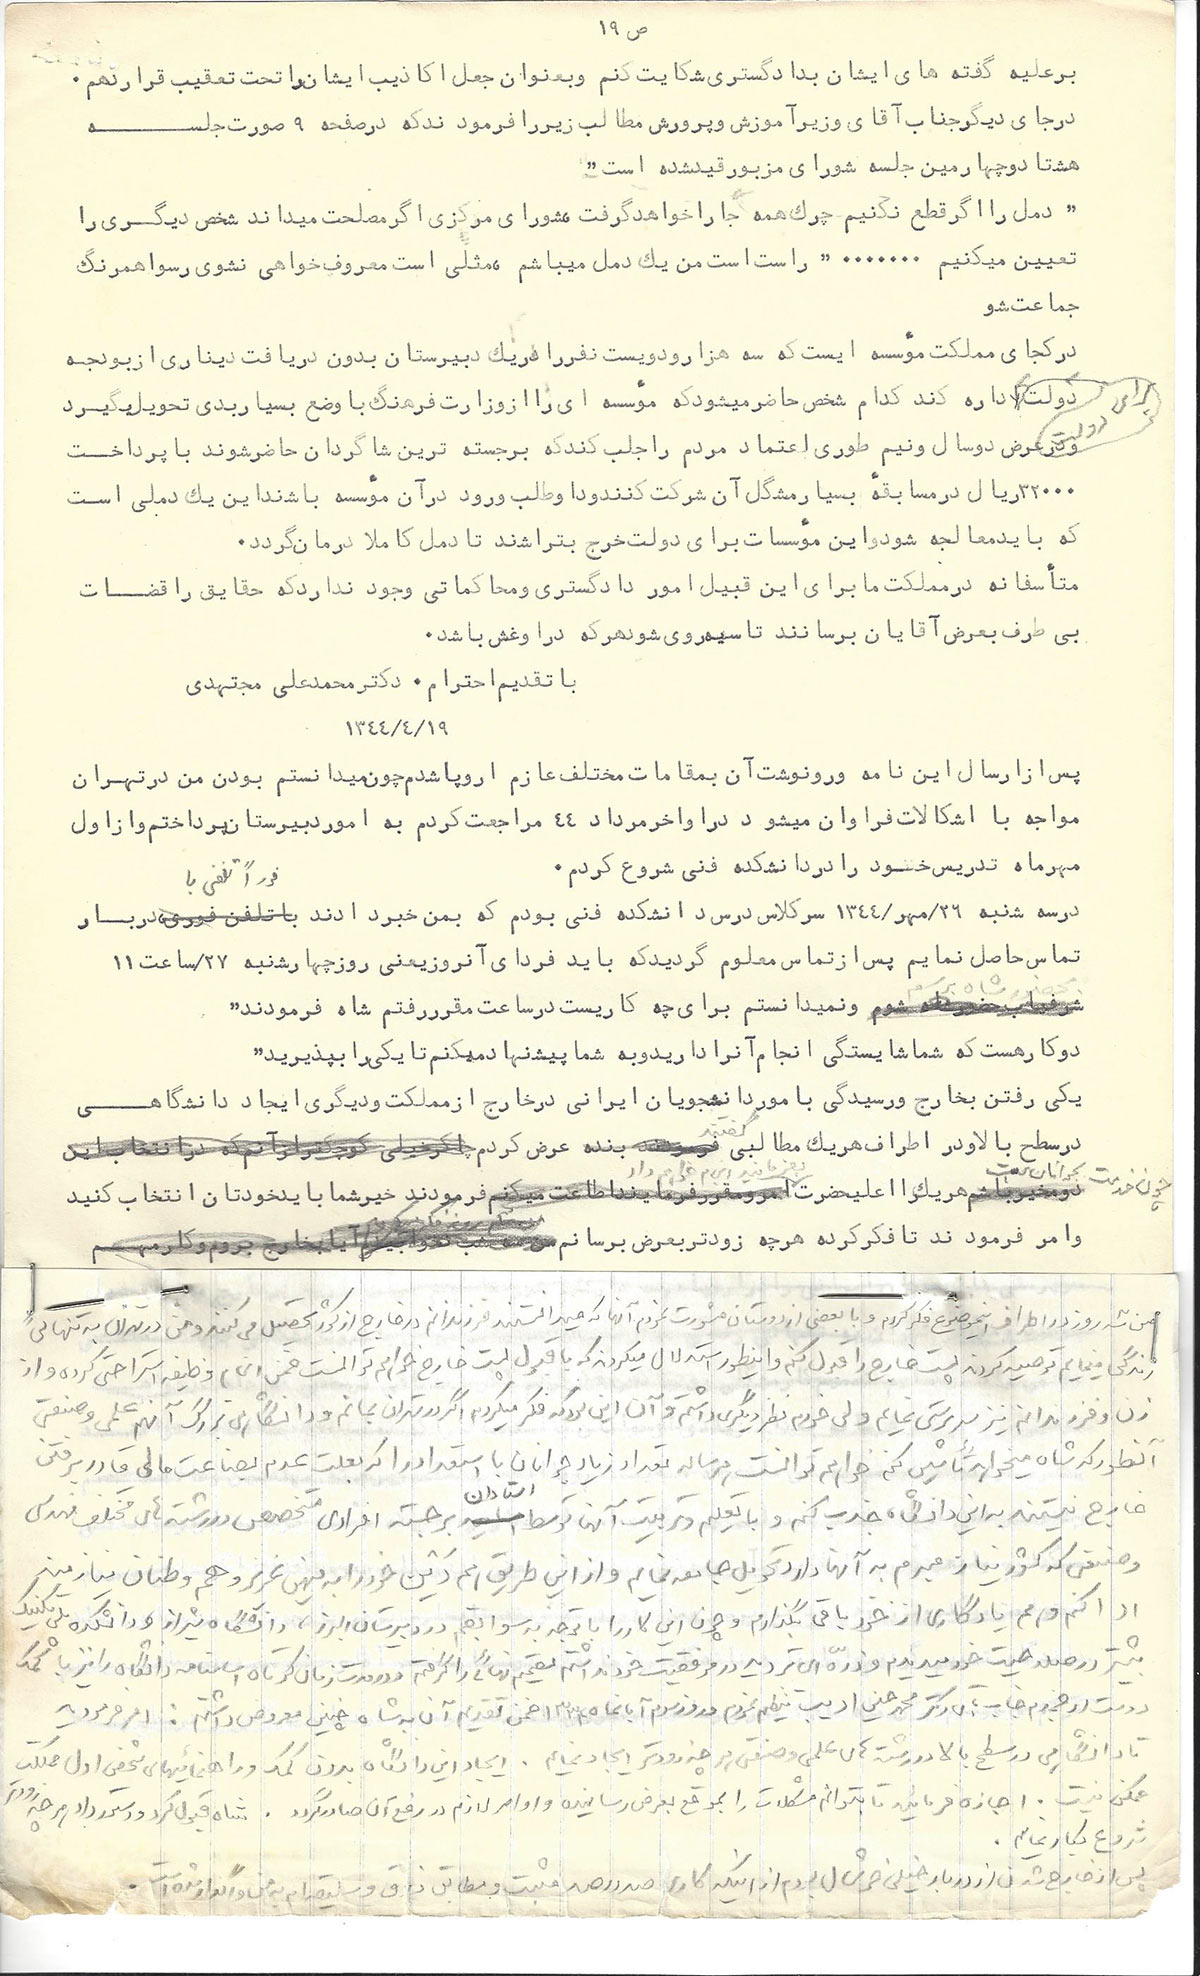 ص ۱۹
برعلیه گفته های ایشان بدادگستری شکایت کنم وبعنوان جعل اکاذیب ایشان راتحت تعقیب قرارنهم ۰
درجای دیگرجناب آقای وزیرآموزش وپرورش مطالب زیررا فرمودندکه درصفحه ۹ صورت جلسه
هشتادوچهارمین جلسه شورای مزبورقیدشده است"
" دمل رااگرقطع نکنیم چرك همه جاراخواهدگرفت ،شورای مرکزی اگرمصلحت میداند شخص دیگری را
تعیین میکنیم ۰۰۰۰۰۰۰ " راست است من یك دمل میباشم ،مثلی است معروف خواهی نشوی رسوا همرنگ
جماعت شو
درکجای مملکت مؤسسه ایست که سه هزارودویست نفررا دریك دبیرستان بدون دریافت دیناری ازبودجه
دولت اداره کند کدام شخص حاضرمیشودکه مؤسسه ای راازوزارت فرهنگ با وضع بسیاربدی تحویل بگیرد برای دولت
ودرعرض دوسال ونیم طوری اعتماد مردم راجلب کندکه برجسته ترین شاگردان حاضرشوند با پرداخت
۳۲۰۰۰ریال درمسابقه بسیارمشگل آن شرکت کنندوداوطلب ورود درآن مؤسسه باشنداین یك دملی است
که بایدمعالجه شودواین مؤسسات برای دولت خرج بتراشند تا دمل کاملا درمان گردد۰
متأسفانه درمملکت ما برای این قبیل امور دادگستری ومحاکماتی وجود نداردکه حقایق راقضات
بی طرف بعرض آقایان برسانند تاسیه روی شودهرکه دراوغش باشد۰
باتقدیم احترام ۰ دکترمحمدعلی مجتهدی
۱۳٤٤/٤/۱۹
پس ازارسال این نامه ورونوشت آن بمقامات مختلف عازم اروپاشدم چون میدانستم بودن من درتهران
مواجه با اشکالات فراوان میشود دراواخرمرداد ٤٤ مراجعت کردم به اموردبیرستان پرداختم وازاول
مهرماه تدریس خود رادردانشکده فنی شروع کردم ۰
فوراً تلفنی با
درسه شنبه ۲۶/مهر/۱۳٤٤ سرکلاس درس دانشکده فنی بودم که بمن خبردادند باتلفن فوری دربار
تماس حاصل نمایم پس ازتماس معلوم گردیدکه باید فردای آنروزیعنی روزچهارشنبه ۲۷/ساعت ۱۱
بحضور شاه برسم
شرفیاب حضور شاه شوم ونمیدانستم برای چه کاریست درساعت مقرررفتم شاه فرمودند"
دوکارهست که شماشایستگی انجام آنراداریدوبه شماپیشنهادمیکنم تایکی رابپذیرید"
یکی رفتن بخارج ورسیدگی با موردانشجویان ایرانی درخارج ازمملکت ودیگری ایجاد دانشگاهی
گفتند
درسطح بالاودر اطراف هریك مطالبی فرمودند بنده عرض کردم چاکرخیلی کوچکتر ازآنم که درانتخاب این
چون خدمت بجوانان است بفرمائید انجام خواهم داد
دومخیرباشم هریك را اعلیحضرت امرومقررفرمایند اطاعت میکنم فرمودند خیرشما باید خودتان انتخاب کنید
وامر فرمودند تافکرکرده هرچه زودتربعرض برسانم من سه شب نخوابیدم آیا بخارج بروم وکارمهم
من سه روز در اطراف این موضوع فکر کردم و با بعضی از دوستان مشورت نمودم آنها که میدانستند فرزندانم در خارج از کشور تحصیل می کنند و من در تهران به تنهائی
زندگی مینمایم توصیه کردند پست خارج را قبول کنم و اینطور استدلال میکردند که با قبول پست خارج خواهم توانست ضمن انجام وظیفه استراحتی کرده و از
زن و فرزندانم نیز سرپرستی نمایم ولی خودم نظر دیگری داشتم و آن این بود که فکر میکردم اگر در تهران بمانم و دانشگاهی بزرگ آنهم علمی و صنعتی
آنطور که شاه میخواهد تأسیس کنم خواهم توانست هر ساله تعداد زیاد جوانان با استعداد را که بعلت عدم بضاعت مالی قادر برفتن
خارج نیستند به این دانشگاه جذب کنم و با تعلیم و تربیت آنها توسط اساتید استادان برجسته افرادی متخصص در رشته های مختلف مهندسی
و صنعتی که کشور نیاز مبرم به آنها دارد تحویل جامعه نمایم و از این طریق هم دین خود را به میهن عزیز و هم وطنان نیازمند
ادا کنم و هم یادگاری از خود باقی بگذارم و چون این کار را با توجه به سوابقم در دبیرستان البرز، دانشگاه شیراز و دانشکده پلی تکنیک
بیشتر در صلاحیت خود میدیدم و ذره ای تردید در موفقیت خود نداشتم تصمیم نهائی را گرفتم و در مدت زمان کوتاه اساسنامه دانشگاه را نیز با کمک
دوست ارجمندم جناب آقای دکتر محمد حسین ادیب تنظیم نمودم و در روز سوم آبانماه ضمن تقدیم آن به شاه چنین معروض داشتم : امر فرمودید
تا دانشگاهی در سطح بالا در رشته های علمی و صنعتی هر چه زودتر ایجاد نمایم . ایجاد این دانشگاه بدون کمک و راهنمائیهای شخص اول مملکت
ممکن نیست . اجازه فرمائید تا بتوانم مشکلات را بموقع بعرض رسانیده و اوامر لازم در رفع آن صادر گردد . شاه قبول کرد و دستور داد هر چه زودتر
شروع بکار نمایم .
پس از خارج شدن از دربار خیلی خوشحال بودم از اینکه کاری صد در صد مثبت و مطابق ذوق و سلیقه ام به من واگذار شده است .